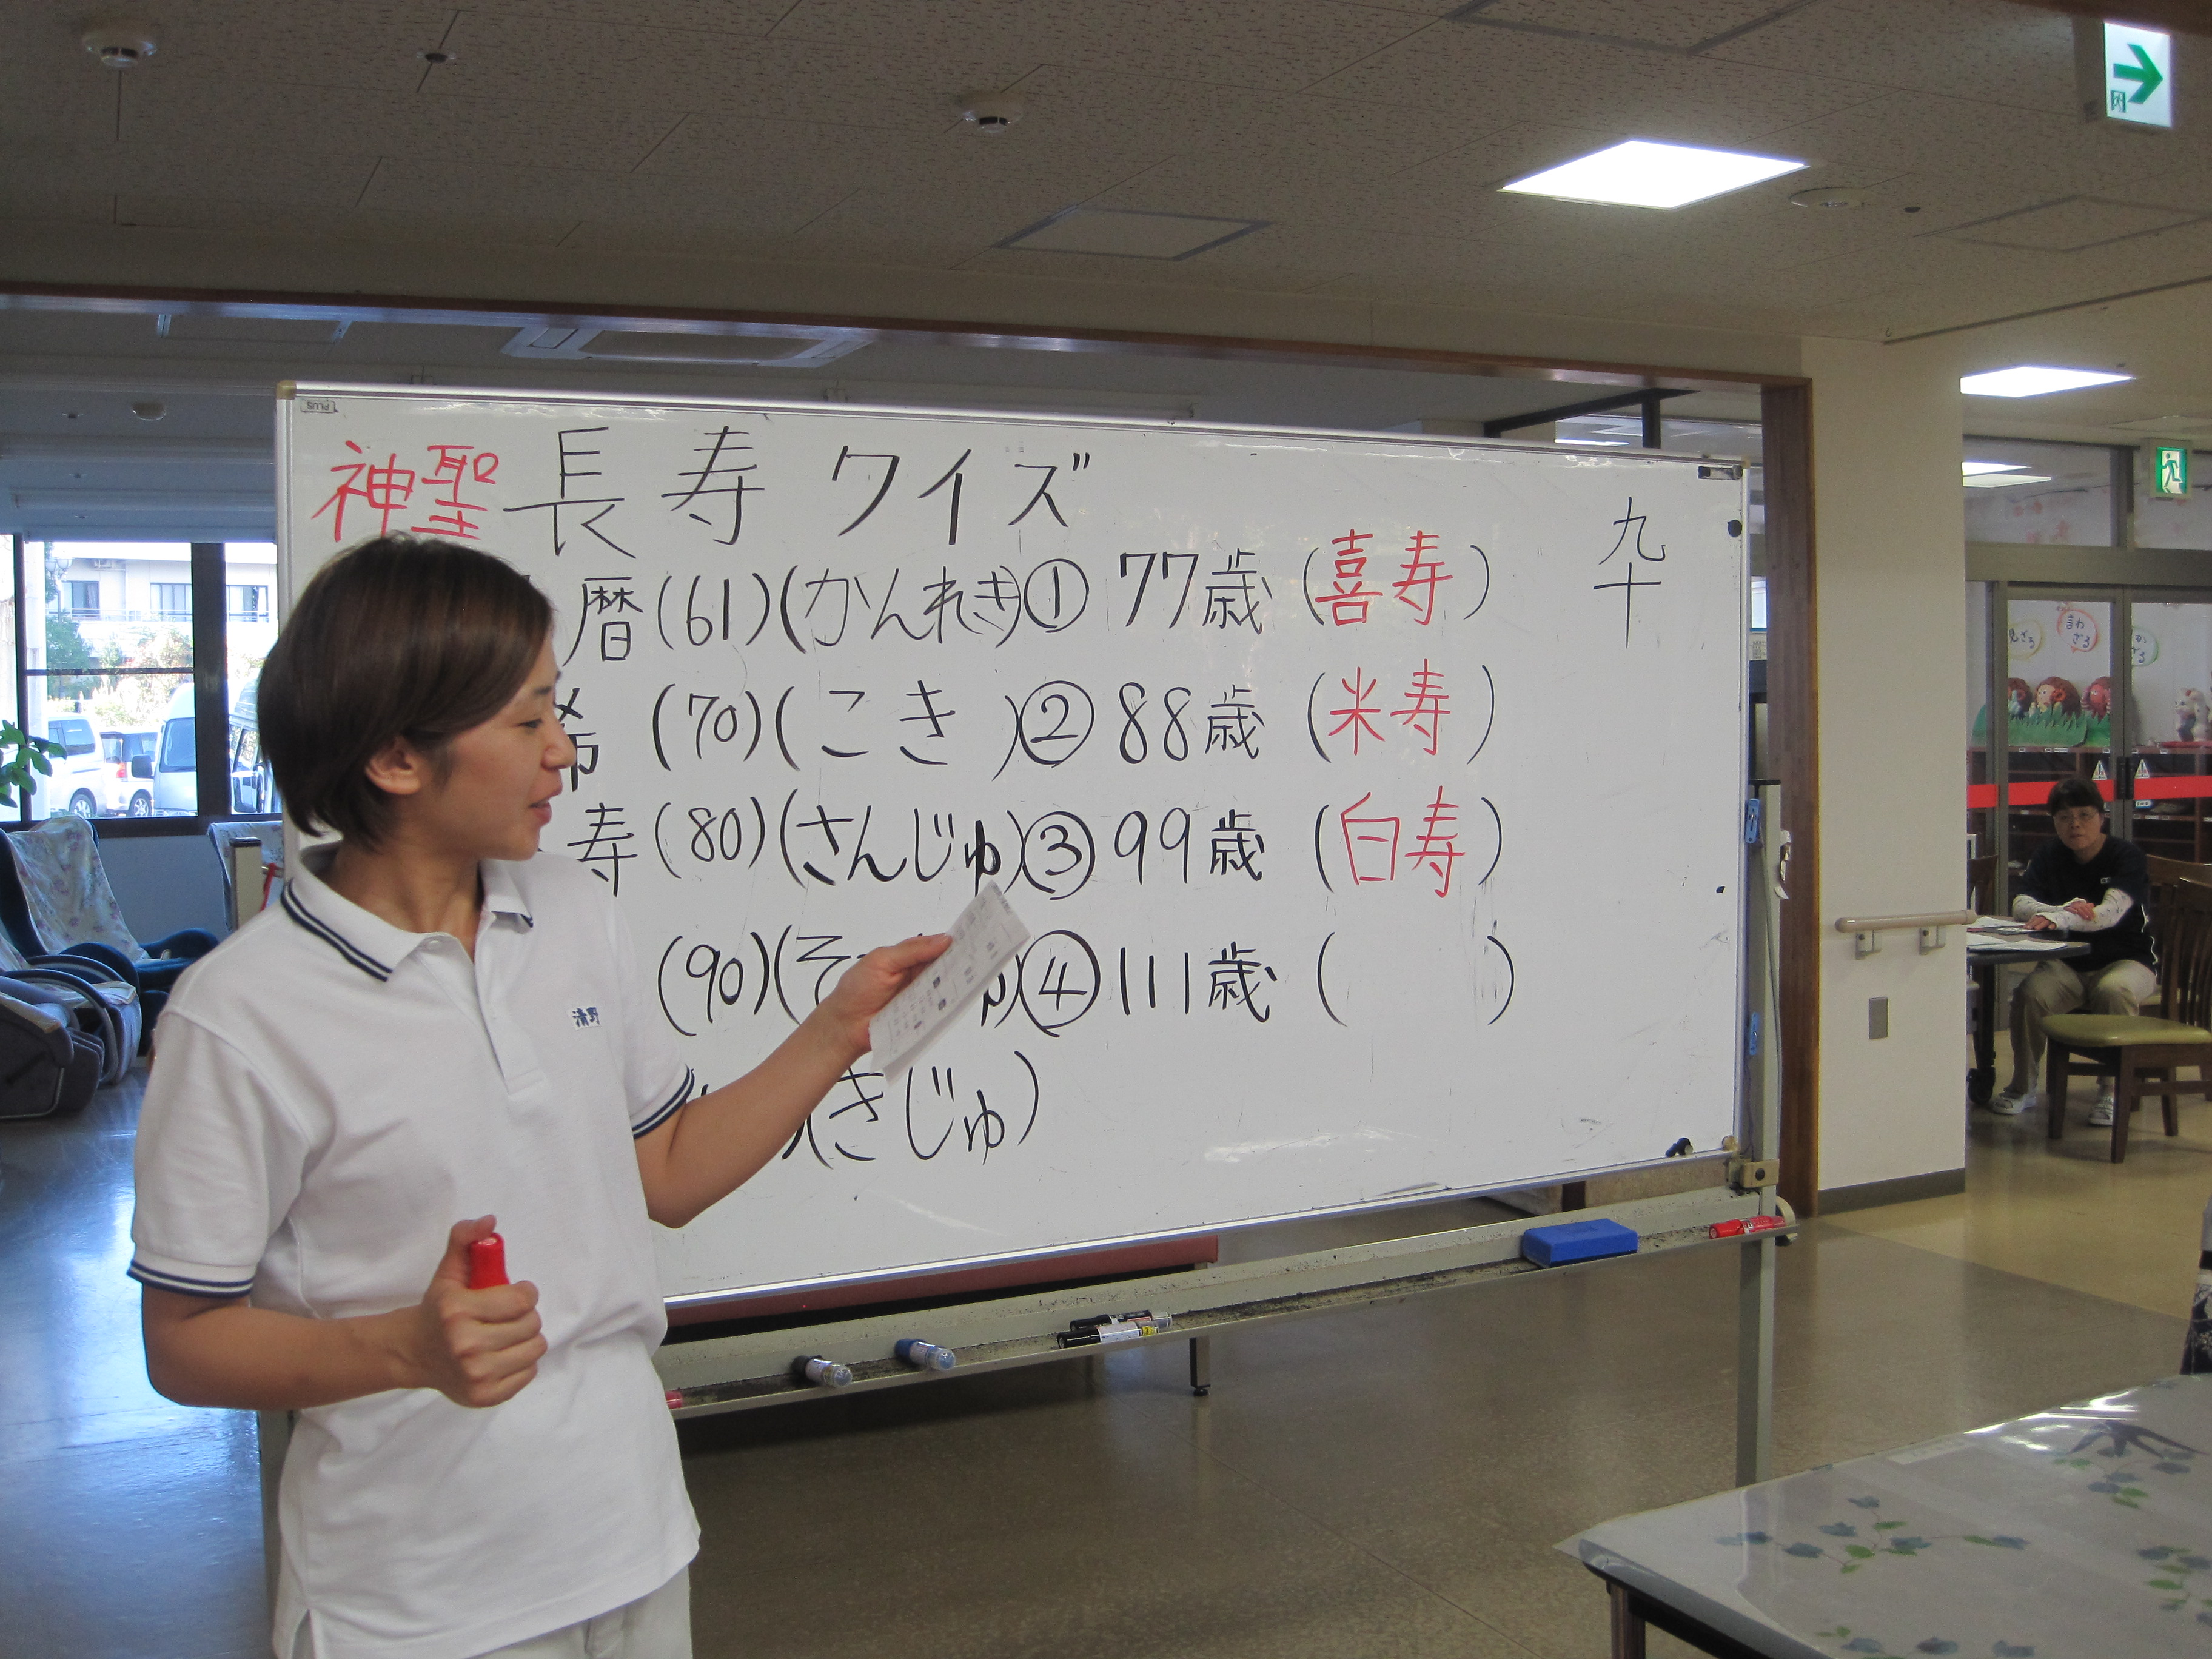 神聖 長寿クイズ
暦(61)(かんれき)① 77歳(喜寿)
九十
希(70)(こき)② 88歳(米寿)
寿(80)(さんじゅ)③ 99歳(白寿)
(90)(そ ④ 111歳( )
(きじゅ)
清野
PLUS
言わざる